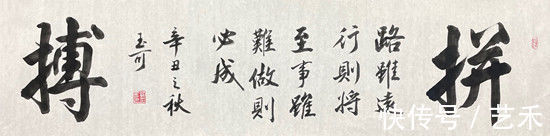 拼
路雖遠
行則將
至事雖
難做則
必成
辛丑之秋
玉可
搏
快传号 / 艺禾